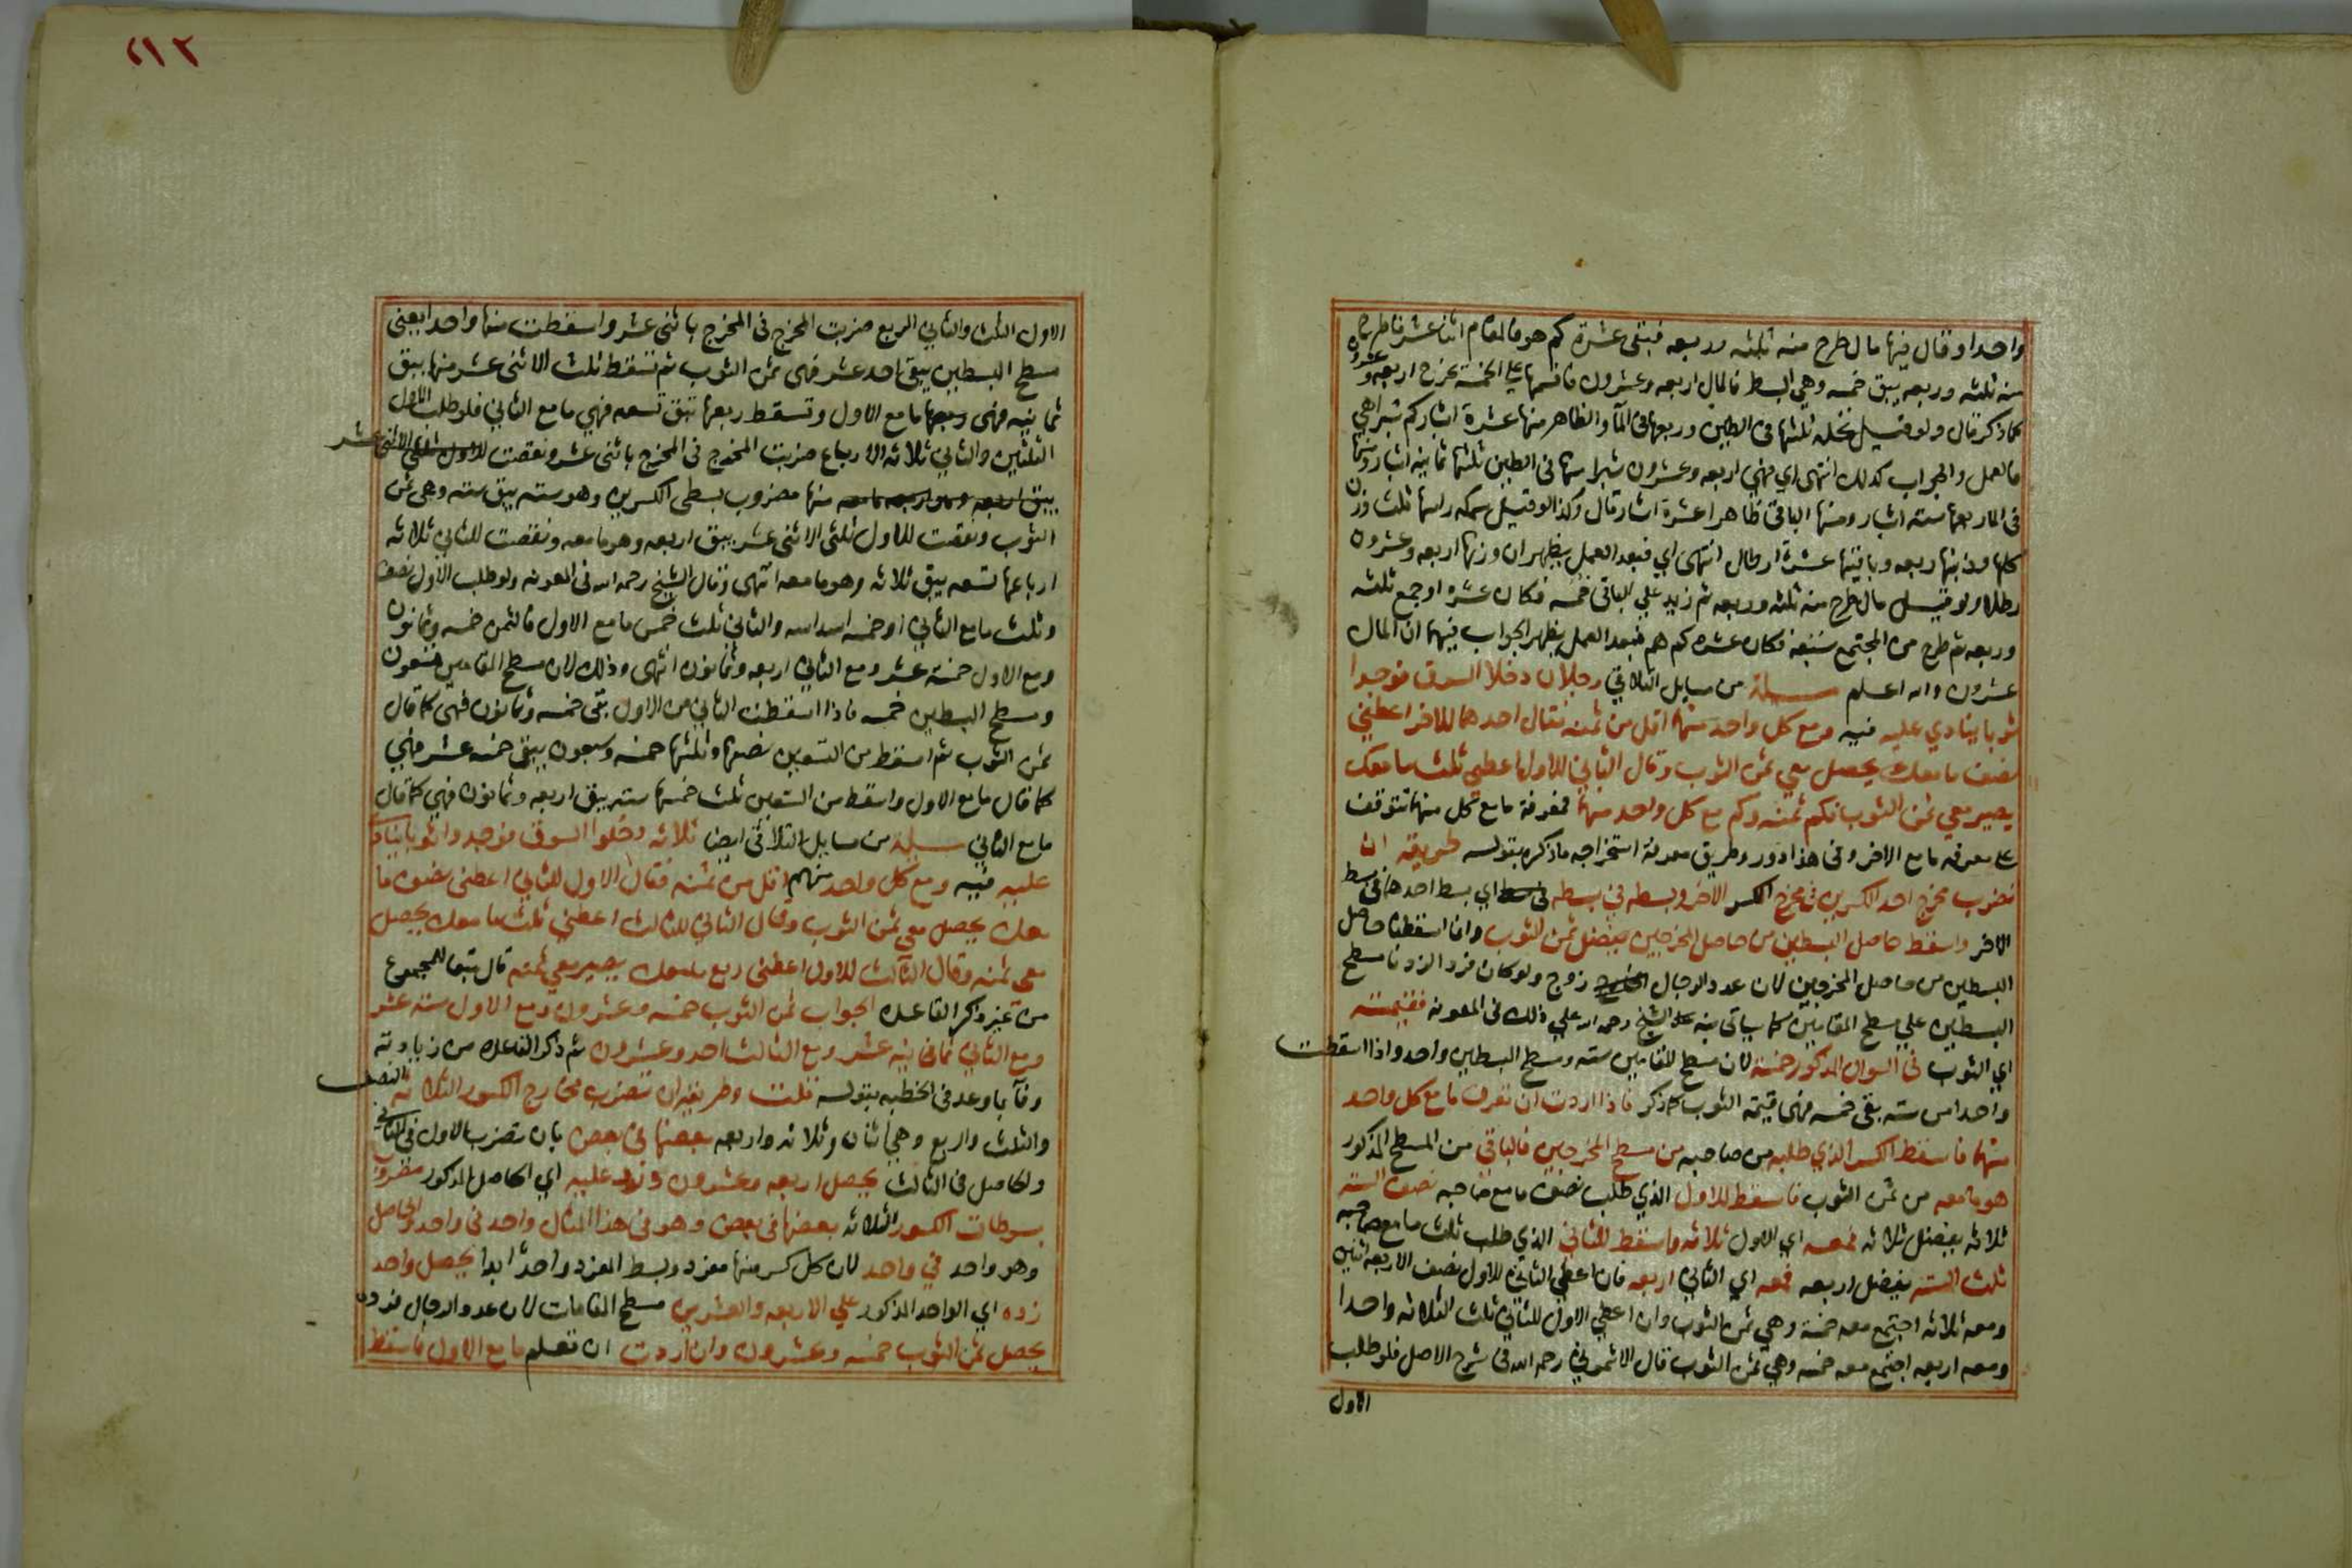 واحدا وقال فيها مال طرح منه ثلثه وربعه فبقى عشرة كم هو فالمقام اثنا عشر فاطرح
منه ثلثه وربعه يبق خمسه وهي البسط فالمال اربعه وعشرون فاقسمها على الخمسة تخرج اربعه وعشرون
كما ذكر قال ولو قيل نخله ثلثها في الطين وربعها في الماء والظاهر منها عشرة اشبار كم شبرا هي
فالعمل والجواب كذلك انتهى اي فهي اربعه وعشرون شبرا منها في الطين ثلثها ثمانيه اشبار ومنها
في الما ربعها سته اشبار ومنها الباقي ظاهرا عشرة اشبار قال وكذا لو قيل سمكه راسها ثلث وزن
كلها وذنبها ربعه وباقيها عشرة ارطال انتهى اي فبعد العمل يظهر ان وزنها اربعه وعشرون
رطلا ولو قيل مال طرح منه ثلثه وربعه ثم زيد على الباقي خمسه فكان عشره او جمع ثلثه
وربعه ثم طرح من المجتمع فكان عشره كم هم فبعد العمل يظهر الجواب فيهما ان المال
عشرون والله اعلم مسئلة من مسايل التلاقي رجلان دخلا السوق فوجدا
ثوبا ينادي عليه فيه ومع كل واحد منهما اقل من ثمنه فقال احدهما للاخر اعطني
نصف ما معك يحصل معي ثمن الثوب وقال الثاني للاول اعطني ثلث ما معك
يصير معي ثمن الثوب فكم ثمنه وكم مع كل واحد منهما فمعرفة ما مع كل منهما تتوقف
على معرفة ما مع الاخر وفي هذا دور وطريق معرفة استخراجه ما ذكره بقوله طريقه ان
تضرب مخرج احد الكسرين في مخرج الكسر الاخر وبسطه في بسطه اي بسط احدهما في بسط
الاخر واسقط حاصل البسطين من حاصل المخرجين يفضل ثمن الثوب وانما اسقطنا حاصل
البسطين من حاصل المخرجين لان عدد الرجال زوج ولو كان فردا لزدنا مسطح
البسطين على مسطح المقامين كما سياتي نبه عليه الشيخ رحمه الله على ذلك في المعونه فقيمته
اي الثوب في السوال المذكور خمسة لان مسطح المقامين سته ومسطح البسطين واحد واذا اسقطت
واحدا من سته بقى خمسه فهي قيمة الثوب كما ذكر فاذا اردت ان تعرف ما مع كل واحد
منهما فاسقط الكسر الذي طلبه من صاحبه من مسطح المخرجين فالباقي من المسطح المذكور
هو ما معه من ثمن الثوب فاسقط للاول الذي طلب نصف ما مع صاحبه نصف السته
ثلاثه يفضل ثلاثه فمعه اي الاول ثلاثه واسقط للثاني الذي طلب ثلث ما مع صاحبه
ثلث السته يفضل اربعه فمعه اي الثاني اربعه فان اعطى الثاني للاول نصف الاربعه اثنين
ومعه ثلاثه اجتمع معه خمسة وهي ثمن الثوب وان اعطى الاول للثاني ثلث الثلاثه واحدا
ومعه اربعه اجتمع معه خمسه وهي ثمن الثوب قال الاشموني رحمه الله في شرح الاصل فلو طلب
الاول
٢١٢
الاول الثلث والثاني الربع ضربت المخرج في المخرج باثنى عشر واسقطت منها واحدا يعني
مسطح البسطين يبقى احد عشر فهي ثمن الثوب ثم تسقط ثلث الاثنى عشر منها يبق
ثمانيه فهي ما مع الاول وتسقط ربعها تبق تسعه فهي ما مع الثاني فلو طلب الاول
الثلثين والثاني ثلاثه الارباع ضربت المخرج في المخرج باثنى عشر ونقصت للاول ثلثي الاثنى عشر
يبق اربعه وهو منها مضروب بسطى الكسرين وهو سته يبق سته وهي ثمن
الثوب ونقصت للاول ثلثى الاثنى عشر يبق اربعه وهو ما معه ونقصت للثاني ثلاثه
ارباعها تسعه يبق ثلاثه وهو ما معه انتهى وقال الشيخ رحمه الله في المعونه ولو طلب الاول نصف
وثلث ما مع الثاني او خمسه اسداسه والثاني ثلث خمس ما مع الاول فالثمن خمسه وثمانون
ومع الاول خمسة عشر ومع الثاني اربعه وثمانون انتهى وذلك لان مسطح المقامين تسعون
ومسطح البسطين خمسه فاذا اسقطت الثاني من الاول بقى خمسه وثمانون فهي كما قال
ثمن الثوب ثم اسقط من التسعين نصفها وثلثها خمسه وسبعون يبقى خمسه عشر فهي
كما قال ما مع الاول واسقط من التسعين ثلث خمسها سته يبق اربعه وثمانون فهي كما قال
ما مع الثاني مسئلة من مسايل التلاقي ايضا ثلاثه دخلوا السوق فوجدوا ثوبا ينادى
عليه فيه ومع كل واحد منهم اقل من ثمنه فقال الاول للثاني اعطنى نصف ما
معك يحصل معي ثمن الثوب وقال الثاني للثالث اعطني ثلث ما معك يحصل
معي ثمنه وقال الثالث للاول اعطنى ربع ما معك يصير معي ثمنه قال تبعا للمجموع
من غير ذكر القاعده الجواب ثمن الثوب خمسه وعشرون ومع الاول سته عشر
ومع الثاني ثمانيه عشر ومع الثالث احد وعشرون ثم ذكر القاعده من زيادته
وفآ بما وعد في الخطبه بقوله قلت وطريقه ان تضرب مخارج الكسور الثلاثه النصف
والثلث والربع وهي اثنان وثلاثه واربعه بعضها في بعض بان تضرب الاول في الثاني
والحاصل في الثالث يحصل اربعه وعشرون وتزد عليه اي الحاصل المذكور مضروب
بسوطات الكسور الثلاثه بعضها في بعض وهو في هذا المثال واحد في واحد والحاصل
وهو واحد في واحد لان كل كسر منها مفرد وبسط المفرد واحد ابدا يحصل واحد
زده اي الواحد المذكور على الاربعه والعشرين مسطح المقامات لان عدد الرجال فرد
يحصل ثمن الثوب خمسه وعشرون وان اردت ان تعلم ما مع الاول فاسقط